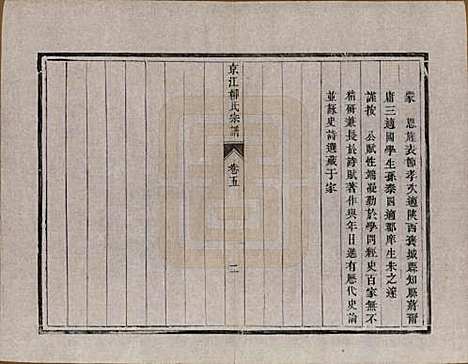 蒙 恩旌表節孝次適陝西襃城縣知縣蔣爾
庸三適國學生孫泰四適郡庠生朱之逵
謹按 公賦性端凝勤於學問經史百家無不
精研兼長於詩賦著作與年日進有歷代史論
並錄史詩選藏于家
京江柳氏宗譜 卷五 二